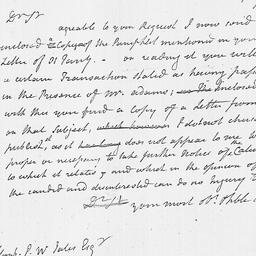 Dr Sr
agreable to your Request I now send
inclosed a Copy of the Pamphlet mentioned in your
Letter of 31 Jany. - on reading it you will
a certain Transaction stated as having pass
in the Presence of Mr. Adams; the Inclosed
with this you find a copy of a Letter from
on that Subject, which however I do not chuse
publishd, as it has long does not appear to me to
proper or necessary to take further Notice of the Calu
to which it relates, and which in the opinion of
the candid and disinterested can do no Injury
Dr Sr your most Ob. & hble
P. W. Yates Esqr